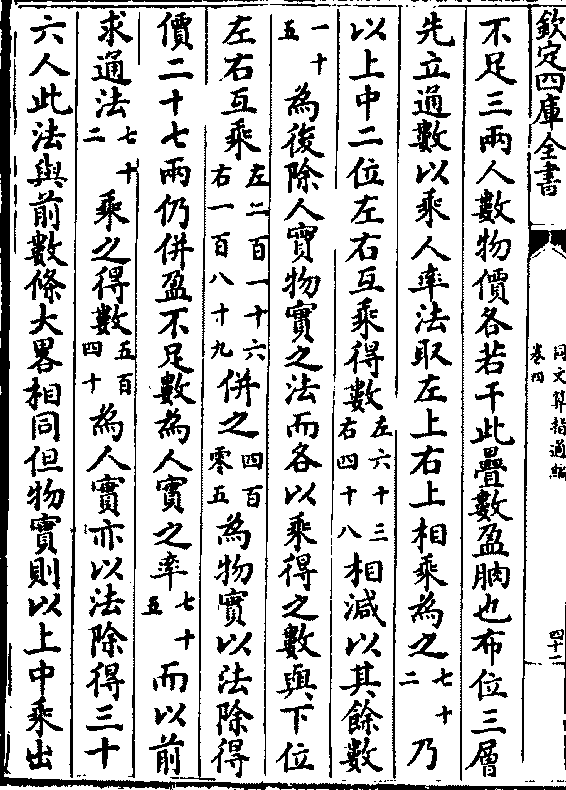 欽定四庫全書
同文算指通編
卷四
四十二
不足三兩人數物價各若干此疊數盈朒也布位三層
先立通數以乘人率法取左上右上相乘為之七十二乃
以上中二位左右互乘得數左六十三右四十八相減以其餘數
一十五為後除人實物實之法而各以乘得之數與下位
左右互乘左二百一十六右一百八十九併之四百零五為物實以法除得
價二十七兩仍併盈不足數為人實之率七十五而以前
求通法七十二乘之得數五百四十為人實亦以法除得三十
六人此法與前數條大畧相同但物實則以上中乘出